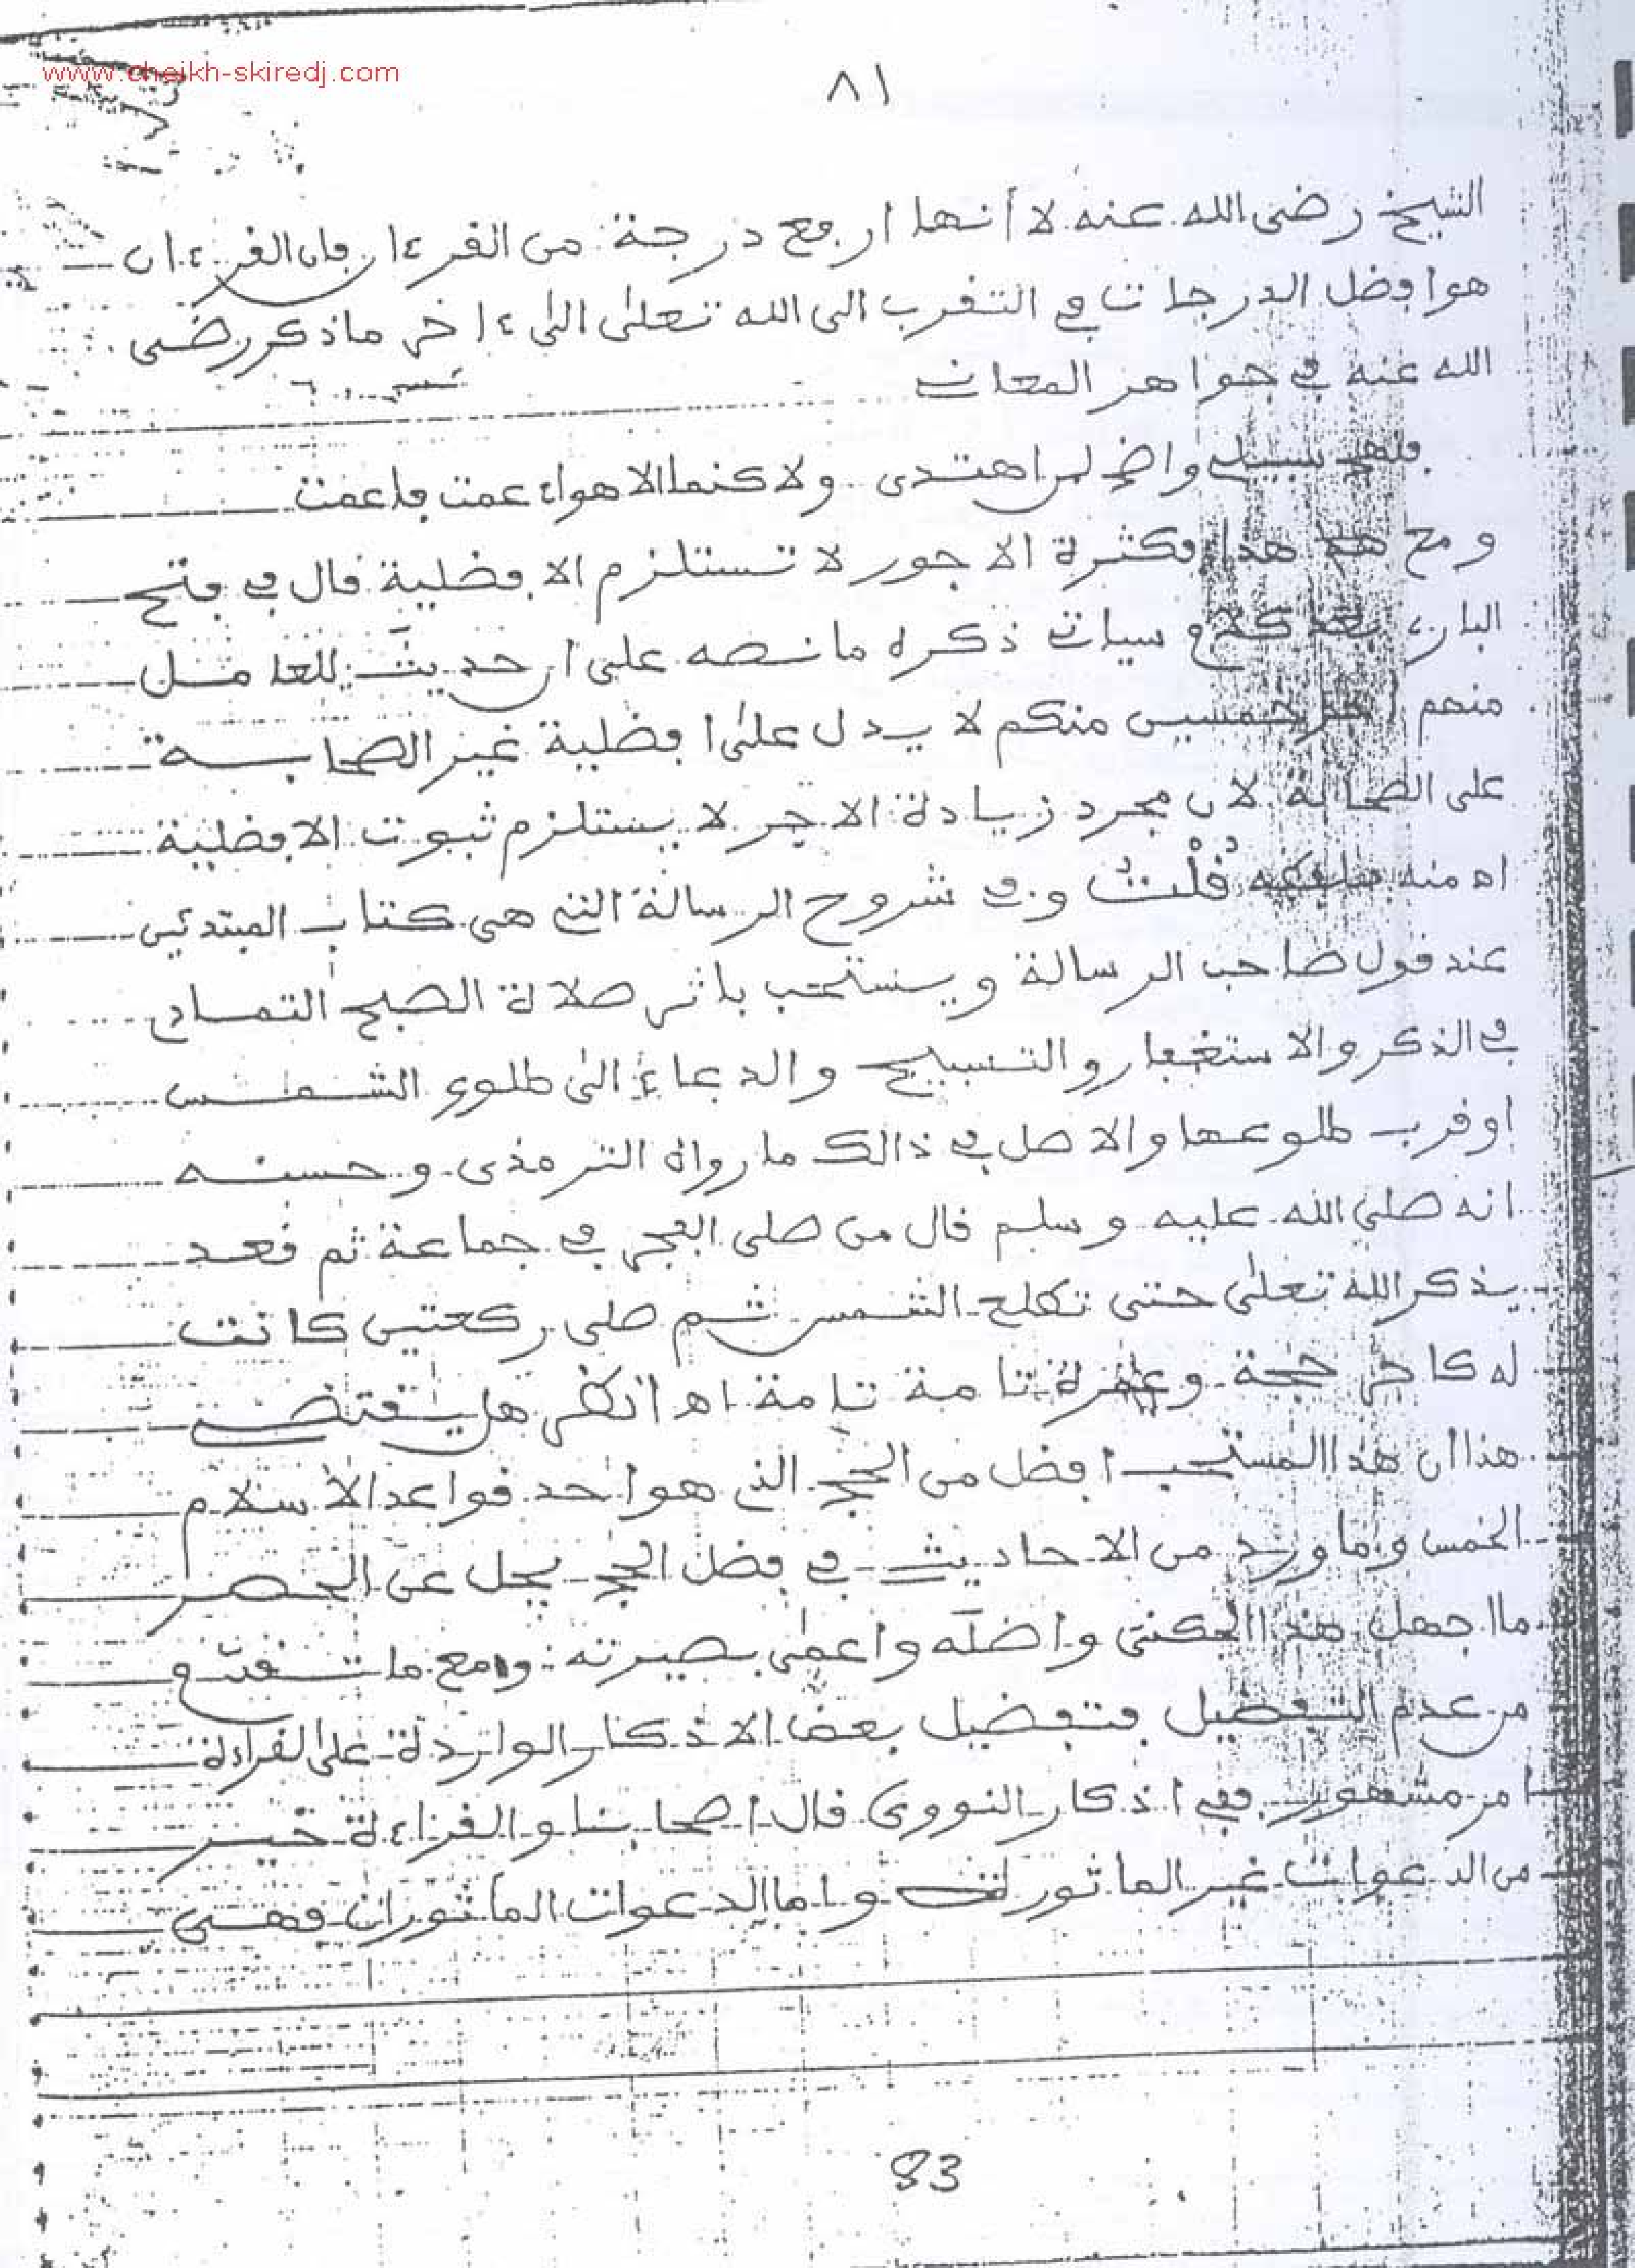 www.cheikh-skiredj.com
٨١
الشيخ رضى الله عنه لا أنها ارفع درجة من القرءان فان القرءان
هو افضل الدرجات في التقرب الى الله تعلى الى ءاخر ما ذكر رضى
الله عنه في جواهر المعان
سبيل واضح لمن اهتدى ولاكنما الاهواء عمت فاعمت
ومع هذا فكثرة الاجور لا تستلزم الافضلية قال في فتح
البارى بعد كلام سيات ذكره ما نصه على ان حديث للعامل
منهم اجر خمسين منكم لا يدل على افضلية غير الصحابة
على الصحابة لان مجرد زيادة الاجر لا يستلزم ثبوت الافضلية
اه منه قُلْتُ وفي شروح الرسالة التي هى كتاب المبتدئين
عند قول صاحب الرسالة ويستحب باثر صلاة الصبح التمادي
في الذكر والاستغفار والتسبيح والدعاء الى طلوع الشمس
او قرب طلوعها والاصل في ذالك ما رواه الترمذى وحسنه
انه صلى الله عليه وسلم قال من صلى الفجر في جماعة ثم قعد
يذكر الله تعلى حتى تطلع الشمس ثم صلى ركعتين كانت
له كاجر حجة وعمرة تامة تامة اه انظر هل يقتضي
هذا ان هذا المستحب افضل من الحج الذي هو احد قواعد الاسلام
الخمس وما ورد من الاحاديث في فضل الحج يجل عن الحصر
ما اجهل هذا المنكتى واضله واعمى بصيرته ومع ما تقدم
من عدم التفضيل فتفضيل بعض الاذكار الواردة على القراءة
امر مشهور ففى اذكار النووى قال اصحابنا والقراءة خير
من الدعوات غير الماثورات واما الدعوات الماثورات فهى
83